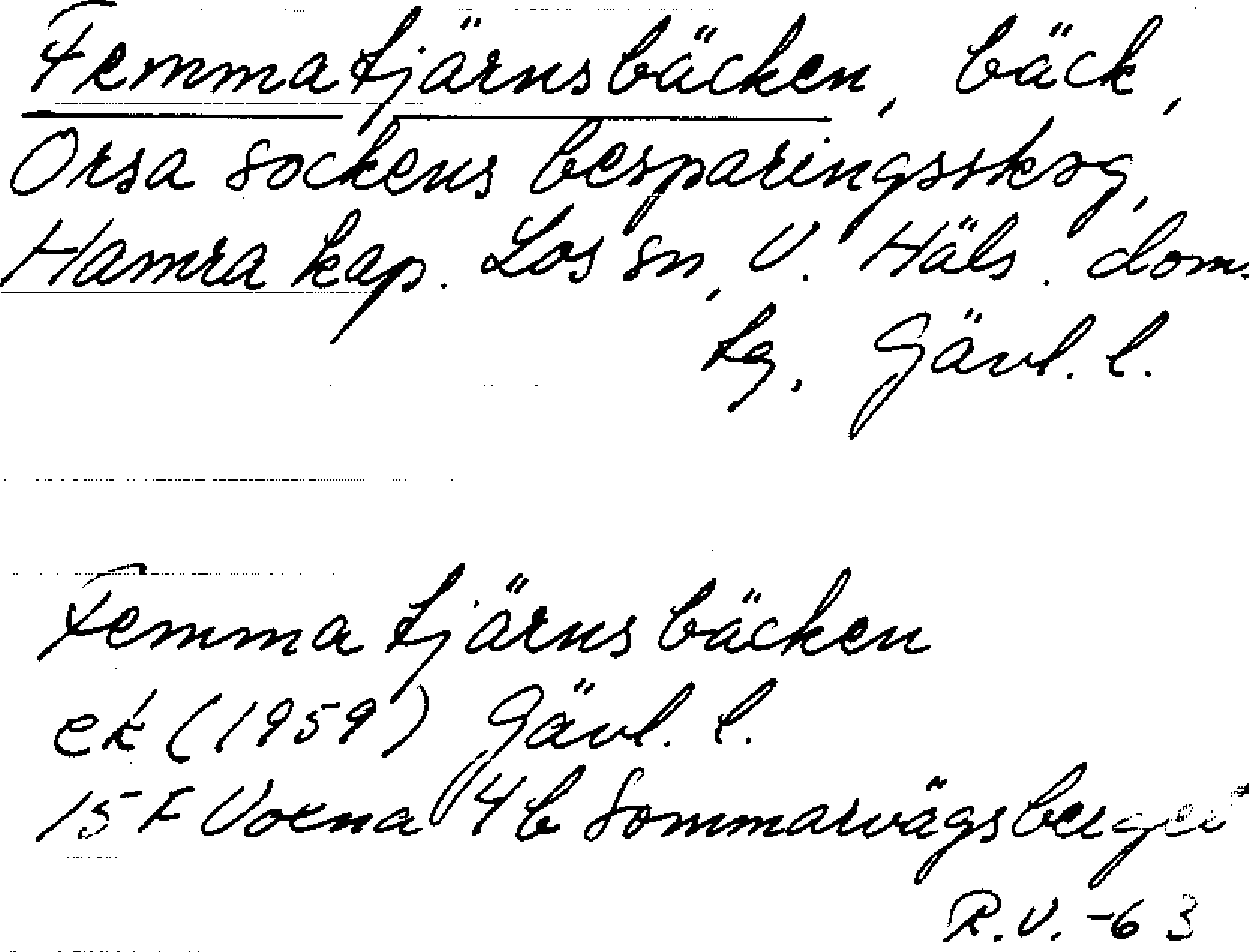 Femmatjärnsbäcken, bäck,
Orsa sockens besparingsskog,
Hamra kap. Los sn, V. Häls. doms.
tg, Gävl. l.
Femmatjärnsbäcken
ek (1959) Gävl. l.
15 F Voxna 4 b Sommarvägsberget
R.V. -63